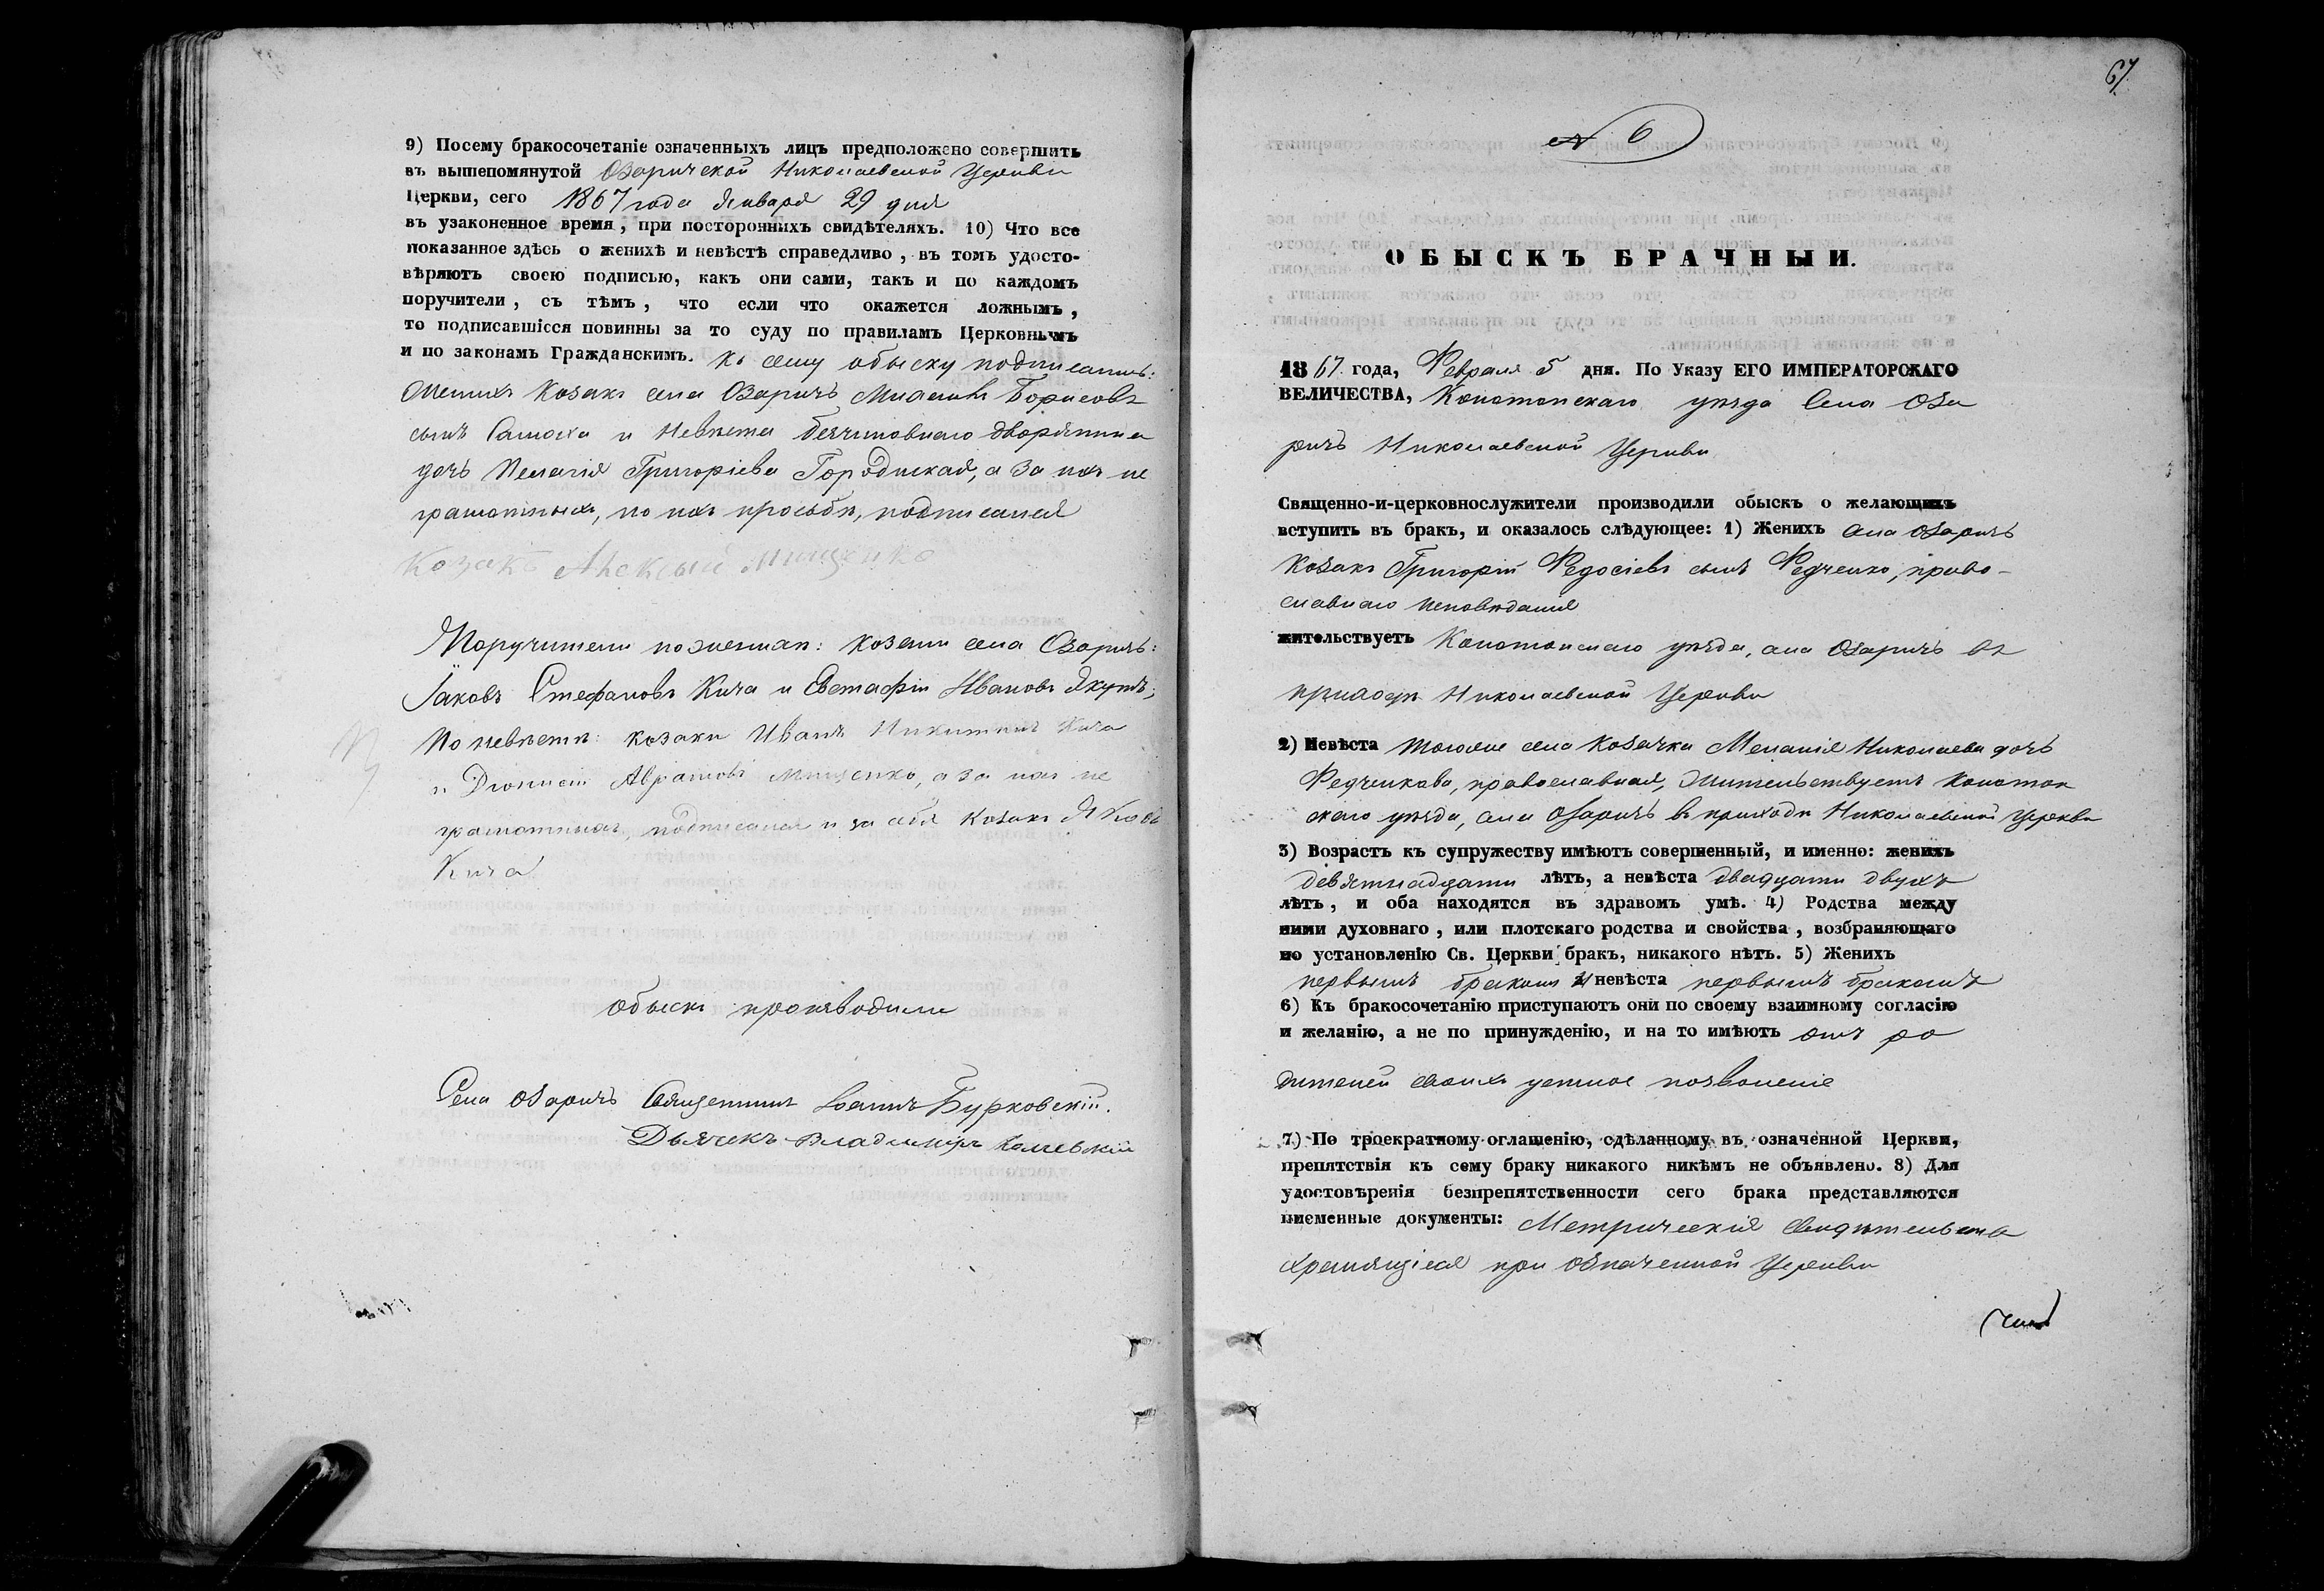 9) Посему бракосочетаніе означенныхъ лицъ предположено совершить
въ вышепомянутой Озаричской Николаевской Церкви
Церкви, сего 1867 года Января 29 дня
въ узаконенное время, при постороннихъ свидѣтеляхъ. 10) Что все
показанное здѣсь о женихѣ и невѣстѣ справедливо, въ томъ удосто-
вѣряютъ своею подписью, какъ они сами, такъ и по каждомъ
поручители, съ тѣмъ, что если что окажется ложнымъ,
то подписавшіеся повинны за то суду по правиламъ Церковнымъ
и по законамъ Гражданскимъ. Къ сему обыску подписались:
Женихъ Козакъ села Озаричъ Борисовъ
сынъ и Невѣста безчиновнаго дворянина
дочь Пелагія Григоріева Городиская, а за нихъ не
грамотныхъ, по ихъ просьбѣ, подписался
Козакъ Алексѣй Мищенко
Поручители по женихѣ: козаки села Озаричъ:
Іаковъ Стефановъ Кича и Евстафій Ивановъ Якутъ;
По невѣстѣ: козаки Иванъ Никитинъ Кича
и Діонисій Аврамовъ Мищенко, а за нихъ не
грамотныхъ, подписался и за себя Козакъ Яковъ
Кича
Обыскъ производили
Села Озаричъ Священникъ Іоаннъ Бурковскій.
Дьячекъ Владимиръ
67
N 6
ОБЫСКЪ БРАЧНЫЙ.
1867 года, Февраля 5 дня. По Указу ЕГО ИМПЕРАТОРСКАГО
ВЕЛИЧЕСТВА, Конотопскаго уѣзда Села Оза
ричъ Николаевской Церкви
Священно-и-церковнослужители производили обыскъ о желающихъ
вступить въ бракъ, и оказалось слѣдующее: 1) Женихъ села Озаричъ
Козакъ Григорій Федосіевъ сынъ Федченко, право-
славнаго исповѣданія
жительствуетъ Конотопскаго уѣзда, села Озаричъ въ
приходѣ Николаевской Церкви
2) Невѣста тогоже села Козачка Меланія Николаева дочь
Федченкова, православная, Жительствуетъ Конотоп
скаго уѣзда, села Озаричъ въ приходѣ Николаевской Церкви
3) Возрастъ къ супружеству имѣютъ совершенный, и именно: женихъ
девятнадцати лѣтъ, а невѣста двадцати двухъ
лѣтъ, и оба находятся въ здравомъ умѣ. 4) Родства между
ними духовнаго, или плотскаго родства и свойства, возбраняющаго
по установленію Св. Церкви бракъ, никакого нѣтъ. 5) Женихъ
первымъ бракомъ и невѣста первымъ бракомъ
6) Къ бракосочетанію приступаютъ они по своему взаимному согласію
и желанію, а не по принужденію, и на то имѣютъ отъ ро
дителей своихъ устное позволеніе
7) По троекратному оглашенію, сдѣланному въ означенной Церкви,
препятствія къ сему браку никакого никѣмъ не объявлено. 8) Для
удостовѣренія безпрепятственности сего брака представляются
письменные документы: Метрическія свидѣтельства
хранящіеся при означенной Церкви